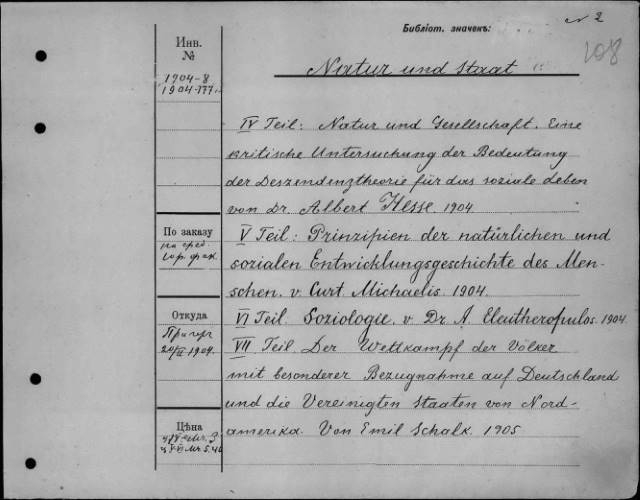 Библіот. значекъ: № 2
108
Инв.
№
1904-8
1904-777
Natur und Staat
IV Teil: Natur und Gesellschaft. Eine
kritische Untersuchung der Bedeutung
der Deszendenztheorie für das soziale Leben
von Dr. Albert Hesse. 1904
По заказу
V Teil: Prinzipien der natürlichen und
sozialen Entwicklungsgeschichte des Men-
schen. v. Curt Michaelis. 1904.
Откуда
VI Teil. Soziologie. v. Dr. A. Eleutheropulos. 1904
VII Teil. Der Wettkampf der Völker
mit besonderer Bezugnahme auf Deutschland
und die Vereinigten Staaten von Nord-
amerika. Von Emil Schalk. 1905
Цѣна